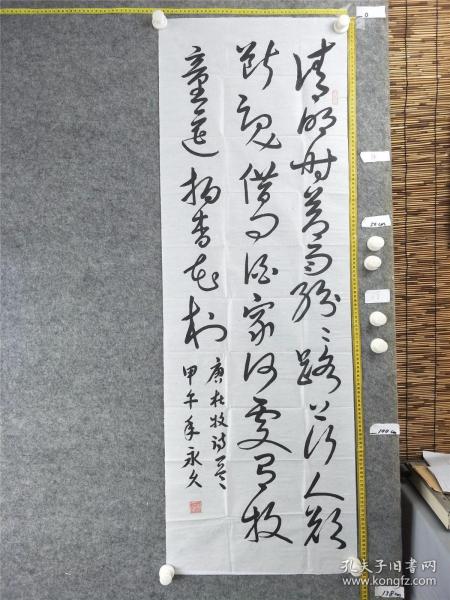 清明时节雨纷〻路上行人欲
断魂借问酒家何处有牧
童遥指杏花村
唐杜牧诗
甲午年永久
0
50cm
100cm
138cm
孔夫子旧书网